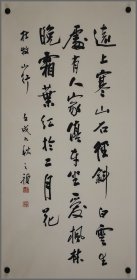 遠上寒山石徑斜白雲生
處有人家停車坐愛楓林
晚霜葉红於二月花
杜牧山行